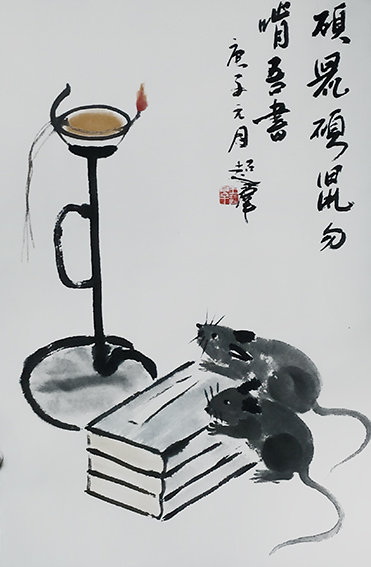 碩鼠碩鼠勿
啃吾書
庚子元月超